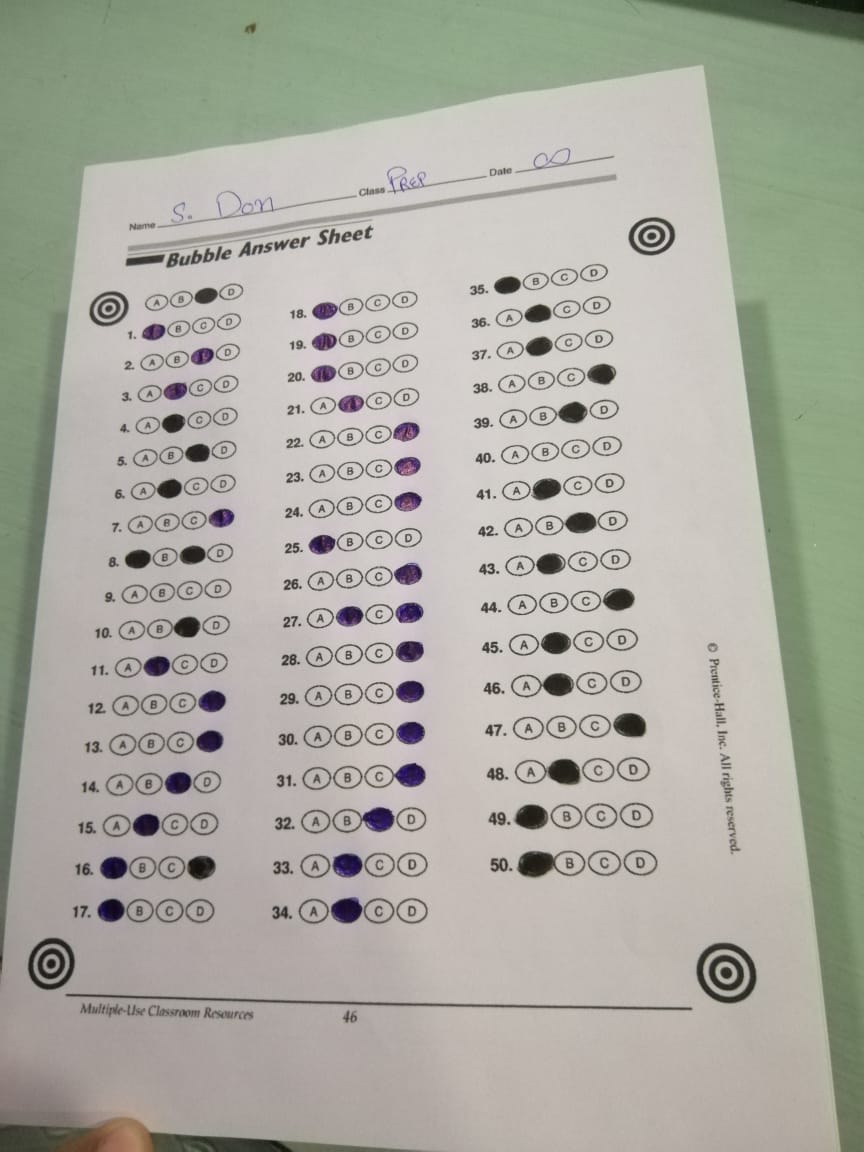 Name S. Don Class PREP Date ∞
Bubble Answer Sheet
A B D
1. B C D
2. A B D
3. A C D
4. A C D
5. A B D
6. A C D
7. A B C
8. B D
9. A B C D
10. A B D
11. A C D
12. A B C
13. A B C
14. A B D
15. A C D
16. B C
17. B C D
18. B C D
19. B C D
20. B C D
21. A C D
22. A B C
23. A B C
24. A B C
25. B C D
26. A B C
27. A C
28. A B C
29. A B C
30. A B C
31. A B C
32. A B D
33. A C D
34. A C D
35. B C D
36. A C D
37. A C D
38. A B C
39. A B D
40. A B C D
41. A C D
42. A B D
43. A C D
44. A B C
45. A C D
46. A C D
47. A B C
48. A C D
49. B C D
50. B C D
© Prentice-Hall, Inc. All rights reserved.
Multiple-Use Classroom Resources 46